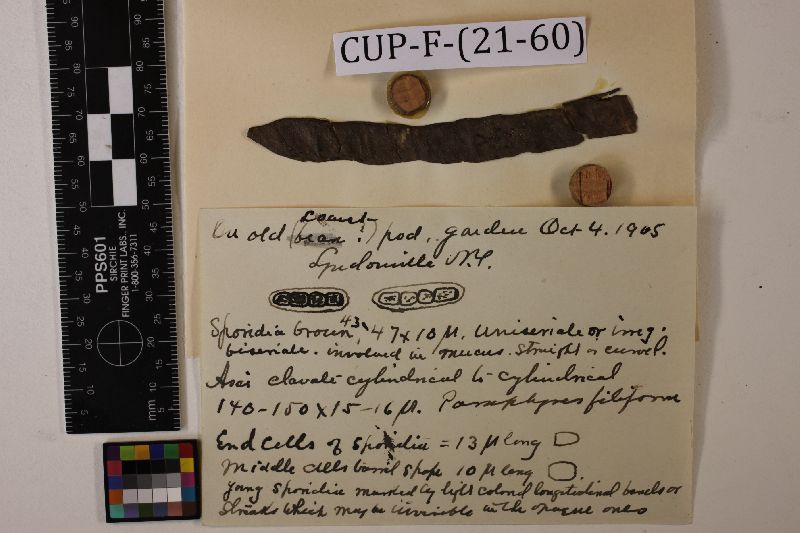 CUP-F-(21-60)
locust
On old (bean?) pod, garden Oct 4. 1905
Lyndonville N.Y.
Sporidia brown, 43-47 x 10 µ. Uniseriate or irreg.
biseriate. involved in mucus. straight or curved.
Asci clavate-cylindrical to cylindrical
140-150 x 15-16 µ. Paraphyses filiform
End cells of sporidia = 13 µ long
Middle cells barrel shape 10 µ long
young sporidia marked by light colored longitudinal bands or
streaks which may be invisible in the opaque ones
PPS601
SIRCHIE
FINGER PRINT LABS, INC.
1-800-356-7311
mm 5 10 15 20 25 30 35 40 45 50 55 60 65 70 75 80 85 90